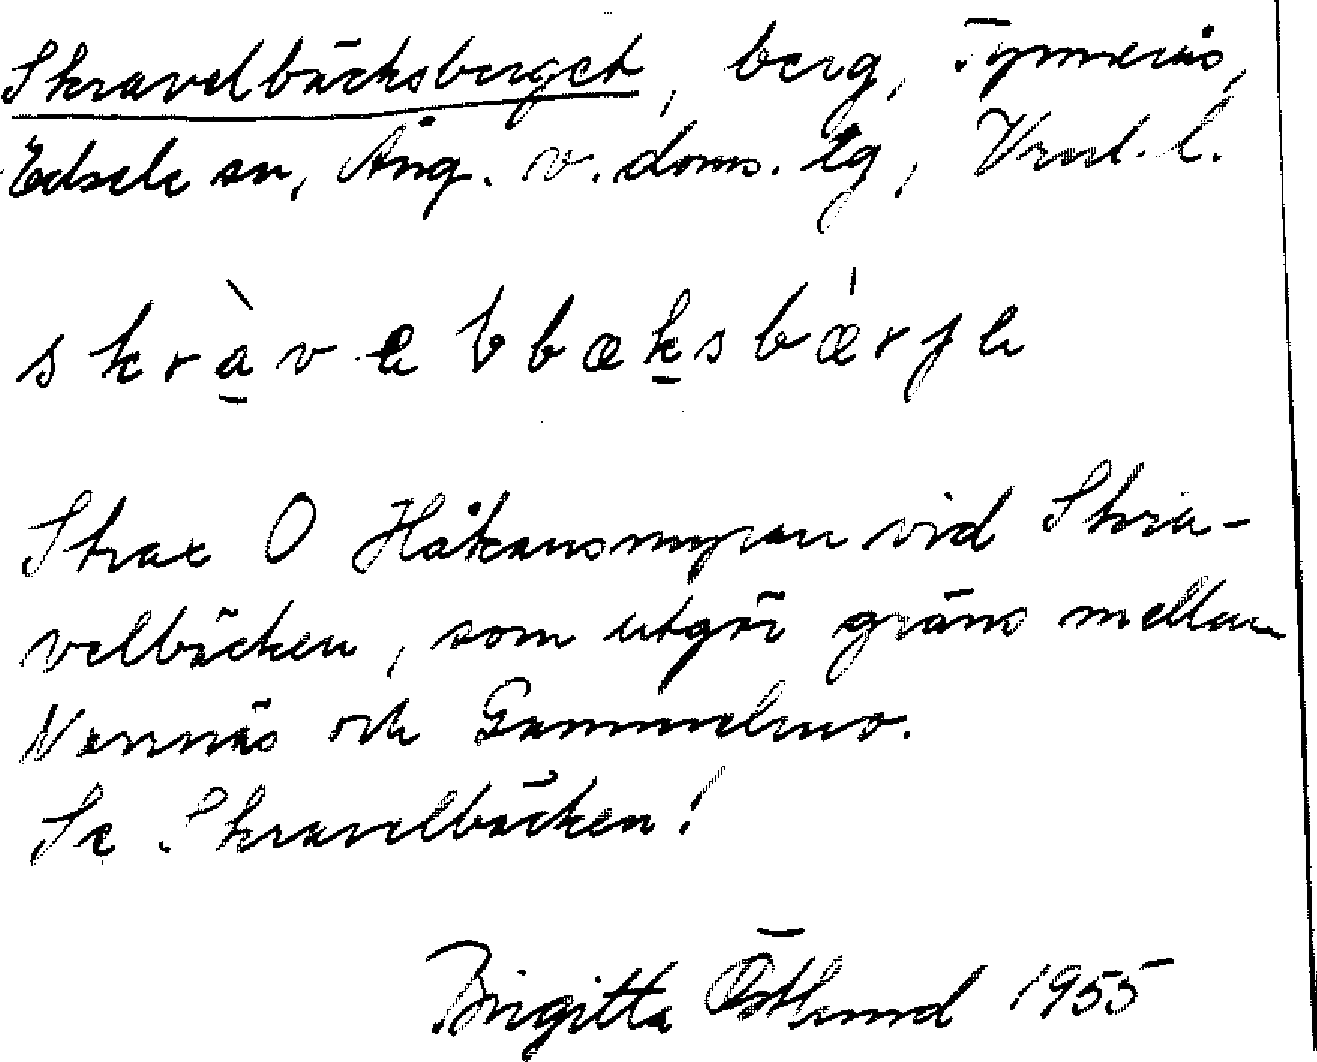 Skravelbäcksberget, berg,
Edsele sn, Ång. v. doms. lg, Vnl. l.
skràvelbbæksbǽrje
Strax O Håkansmyran vid Skra-
velbäcken, som utgör gräns mellan
Nannäs och Gammelmo.
Se Skravelbäcken!
Birgitta Östlund 1955